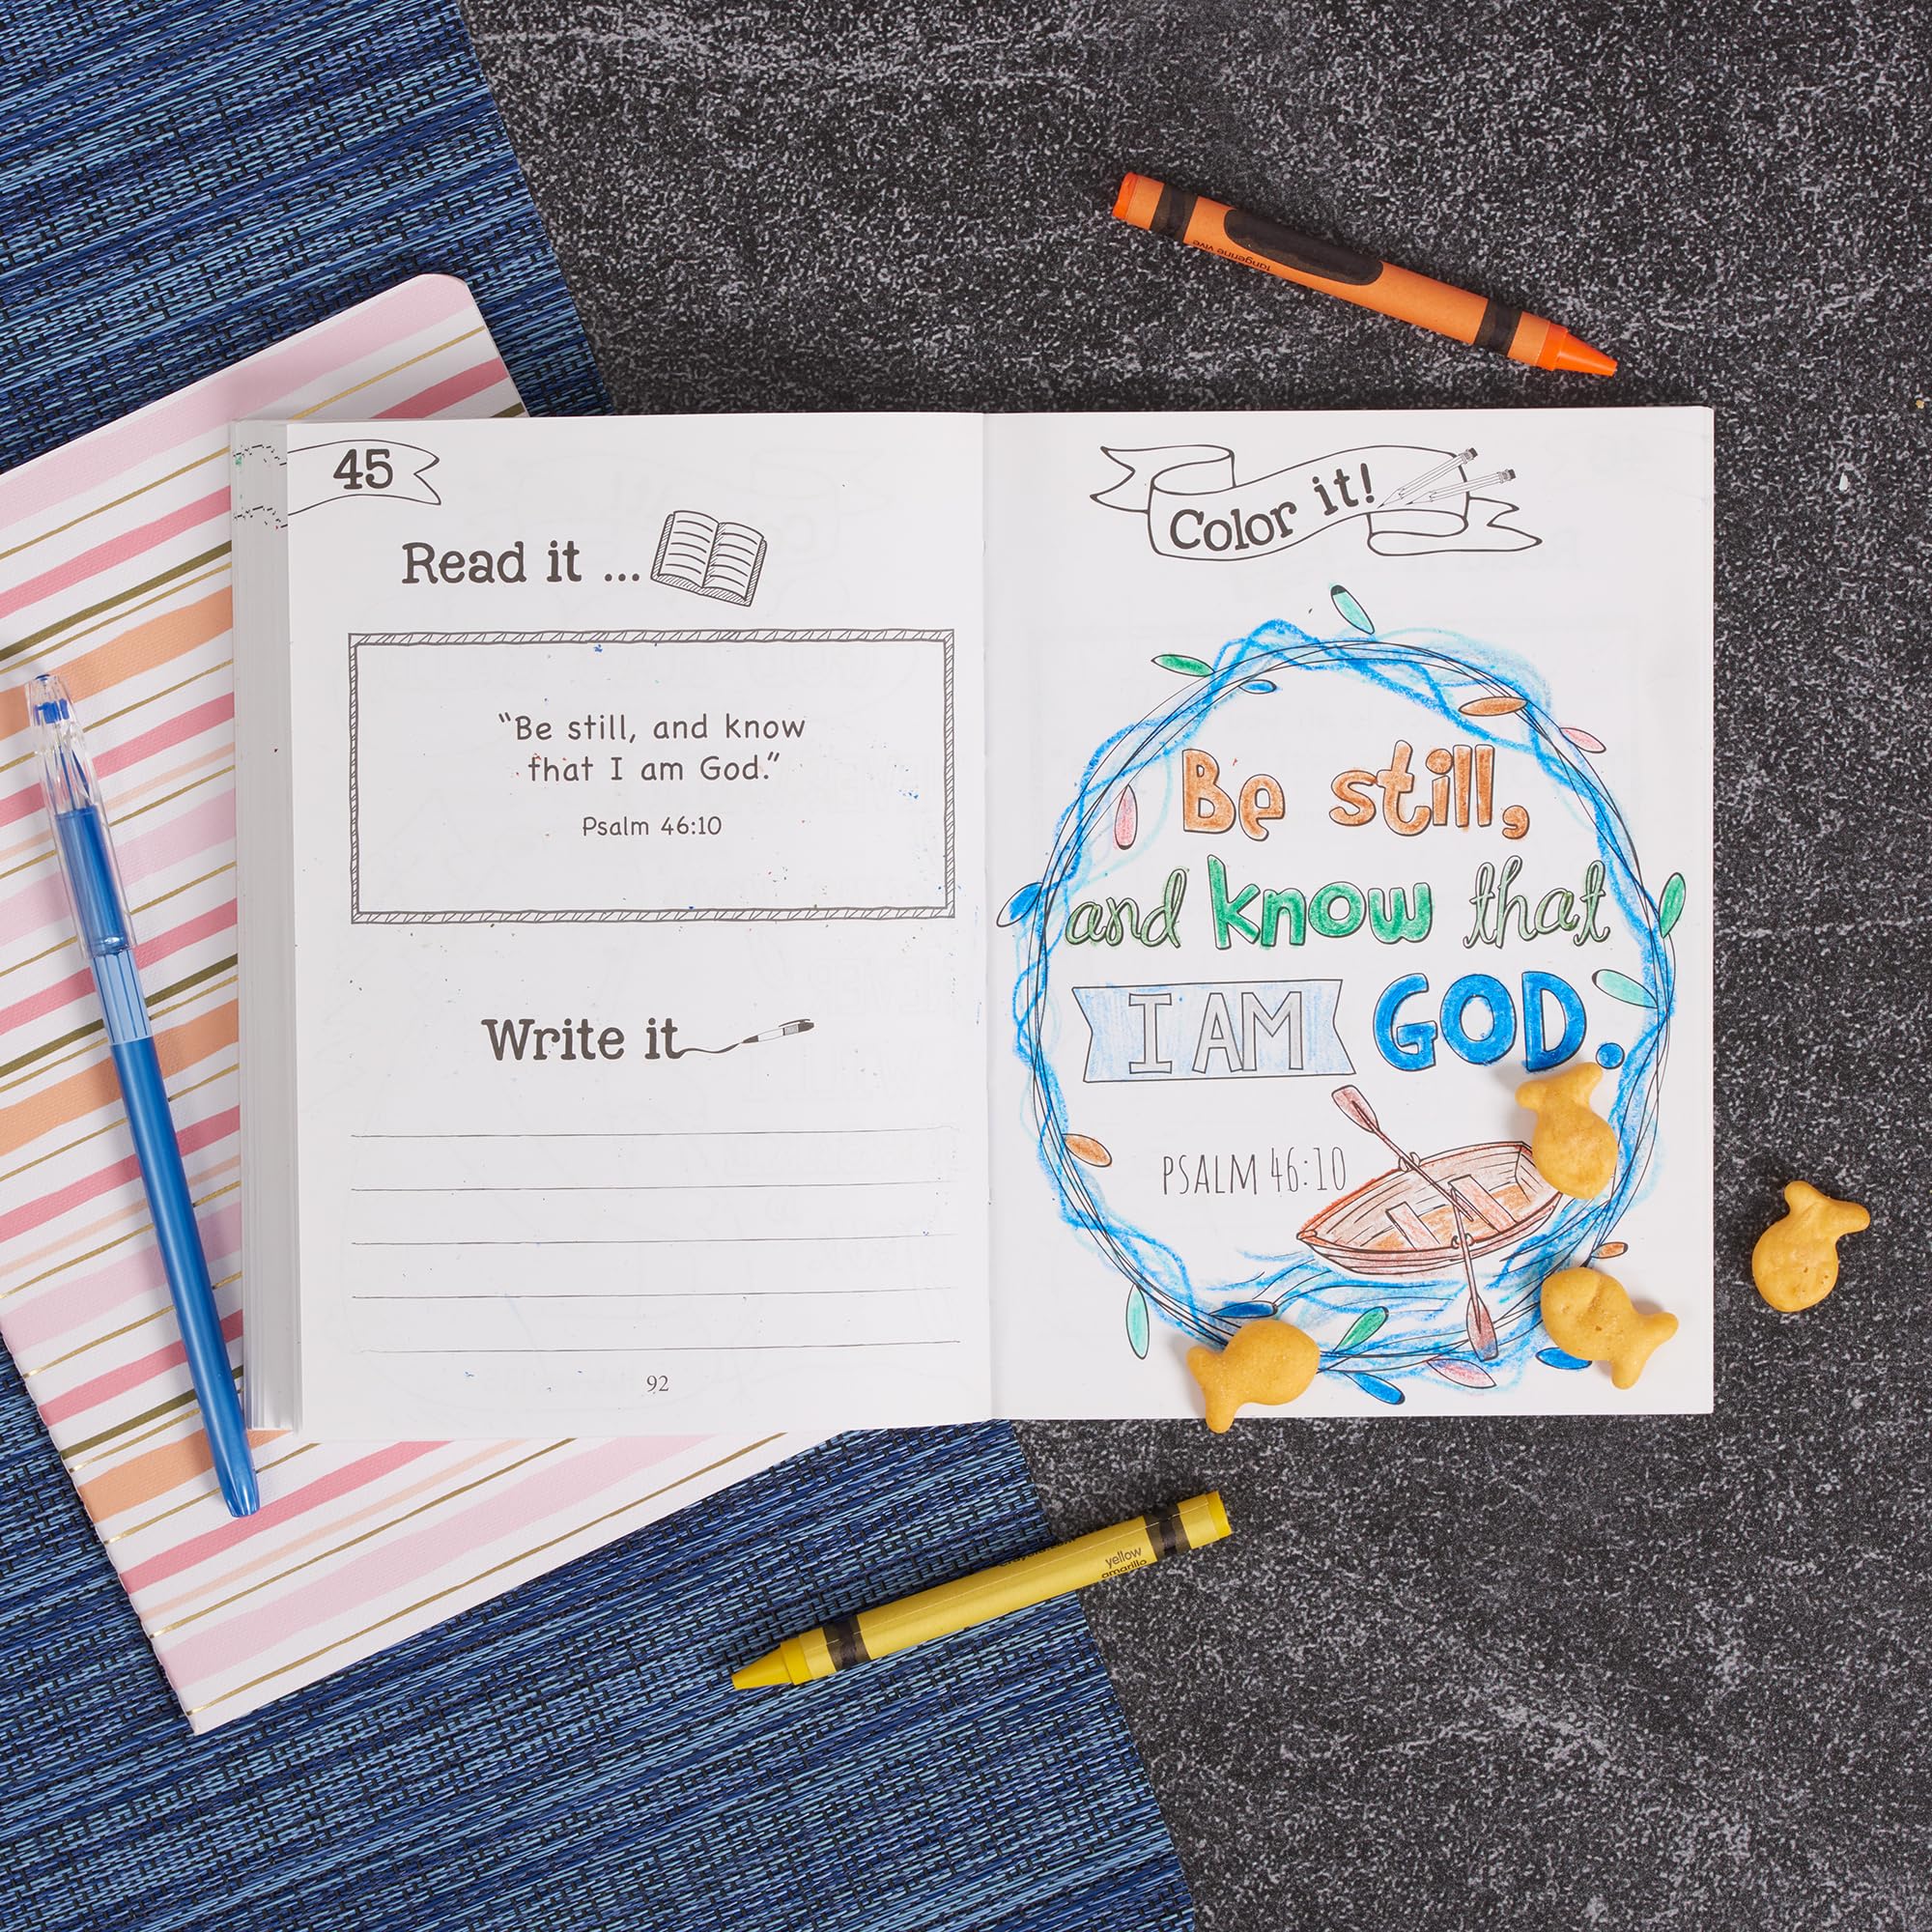 tangerine vive
45
Read it ...
"Be still, and know
that I am God."
Psalm 46:10
Write it
92
Color it!
Be still,
and know that
I AM GOD.
PSALM 46:10
yellow
amarillo